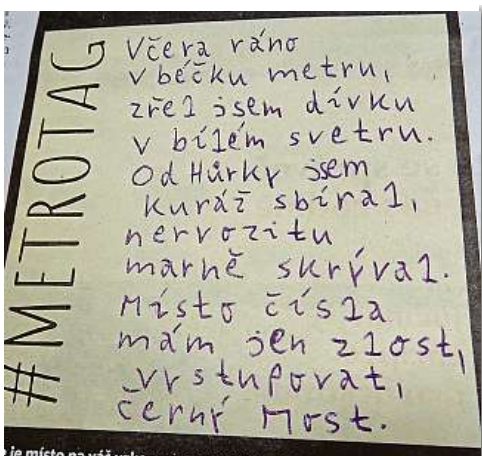 #METROTAG
Včera ráno
v béčku metru,
zřel jsem dívku
v bílém svetru.
Od Hůrky jsem
kuráž sbíral,
nervozitu
marně skrýval.
Místo čísla
mám jen zlost,
vrstupovat,
černý Most.
je místo na váš